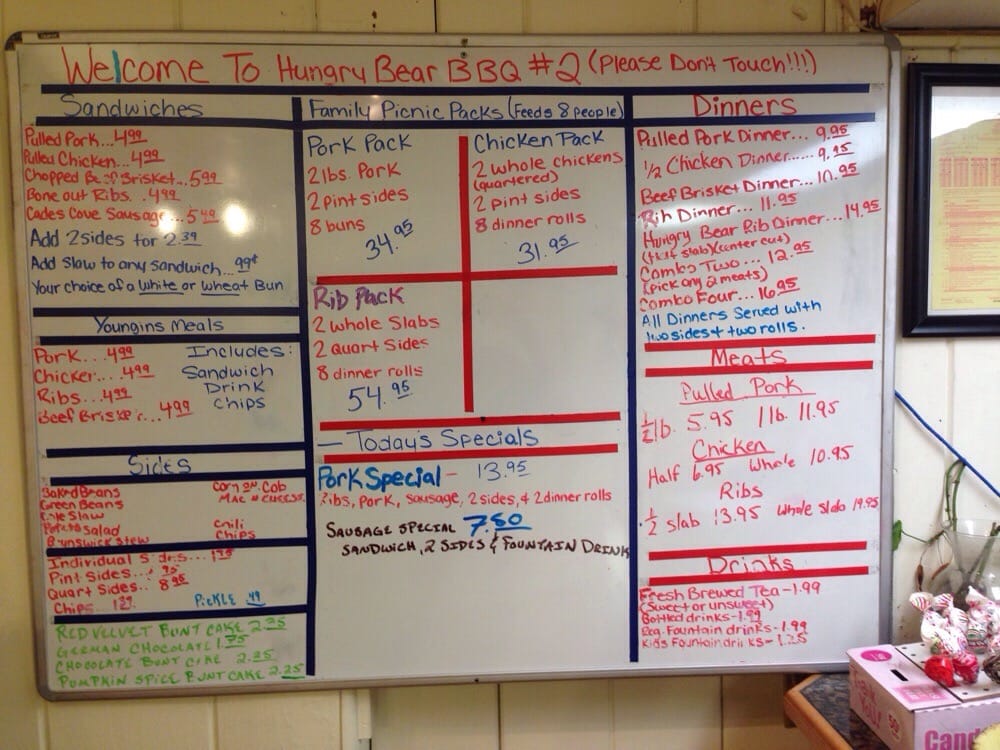 Welcome To Hungry Bear BBQ #2 (Please Don't Touch!!!)
Sandwiches
Pulled Pork...4.99
Pulled Chicken...4.99
Chopped Beef Brisket...5.99
Bone out Ribs...4.99
Cades Cove Sausage...5.49
Add 2 sides for 2.39
Add Slaw to any Sandwich...99¢
Your choice of a White or Wheat Bun
Youngins Meals
Pork...4.99
Chicken...4.99
Ribs...4.99
Beef Brisket...4.99
Includes:
Sandwich
Drink
Chips
Sides
Baked Beans
Green Beans
Cole Slaw
Potato Salad
Brunswick Stew
Corn on Cob
Mac N Cheese
Chili
Chips
Individual Sides...
Pint Sides...
Quart Sides.. 8.95
Chips... 1.29
Pickle .49
Red Velvet Bunt Cake 2.25
German Chocolate 1.75
Chocolate Bunt Cake 2.25
Pumpkin Spice Bunt Cake 2.25
Family Picnic Packs (Feeds 8 people)
Pork Pack
2 lbs. Pork
2 pint sides
8 buns
34.95
Chicken Pack
2 whole chickens
(quartered)
2 pint sides
8 dinner rolls
31.95
Rib Pack
2 whole Slabs
2 Quart Sides
8 dinner rolls
54.95
— Today's Specials
Pork Special - 13.95
Ribs, Pork, sausage, 2 sides, & 2 dinner rolls
Sausage Special 7.50
Sandwich, 2 Sides & Fountain Drink
Dinners
Pulled Pork Dinner... 9.95
1/2 Chicken Dinner...... 9.95
Beef Brisket Dinner... 10.95
Rib Dinner... 11.95
Hungry Bear Rib Dinner... 14.95
(half slab)(center cut)
Combo Two... 12.95
(pick any 2 meats)
Combo Four... 16.95
All Dinners Served with
two sides + two rolls.
Meats
Pulled Pork
1/2 lb. 5.95 1 lb. 11.95
Chicken
Half 6.95 Whole 10.95
Ribs
1/2 slab 13.95 Whole slab 19.95
Drinks
Fresh Brewed Tea - 1.99
(Sweet or unsweet)
Bottled drinks - 1.99
Reg. Fountain drinks - 1.99
Kids Fountain drinks - 1.25